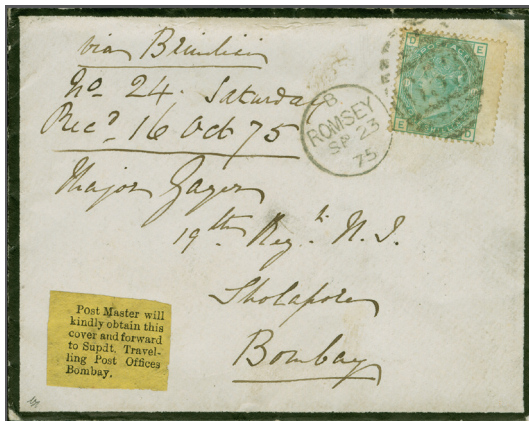 via Brindisi
No 24. Saturday
Recd 16 Oct 75
B
ROMSEY
SP 23
75
D E
E D
Major Gayer
19th Regt. N. I.
Sholapore
Bombay
Post Master will
kindly obtain this
cover and forward
to Supdt. Travel-
ling Post Offices
Bombay.